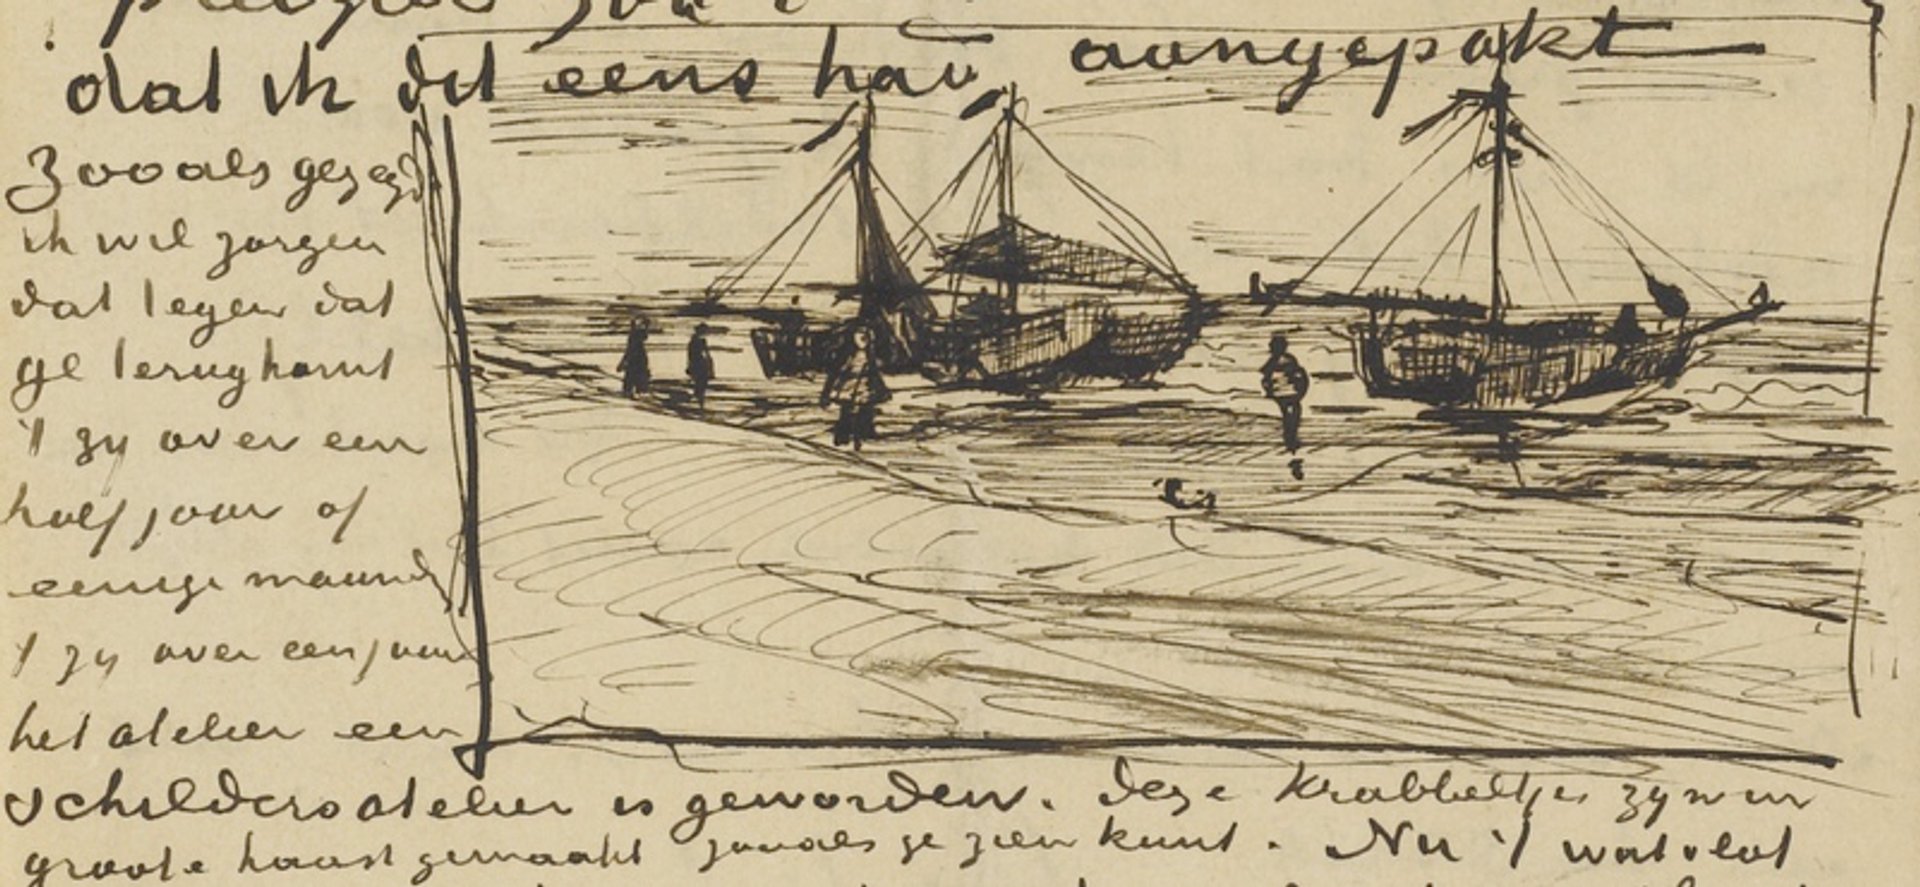 dat ik dit eens had aangepakt
Zooals gezegd
ik wil zorgen
dat tegen dat
ge terugkomt
't zy over een
half jaar of
eenige maand
't zy over een jaar
het atelier een
schildersatelier is geworden. Deze krabbeltjes zyn in
groote haast gemaakt zooals ge zien kunt. Nu 't wat vlot